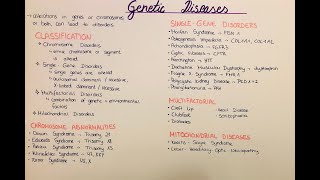 Genetic Diseases
• alterations in genes or chromosomes
or both can lead to disorders
CLASSIFICATION
→ Chromosome Disorders
• entire chromosome or segment
is altered
→ Single Gene Disorders
• single genes are altered
• autosomal dominant / recessive
X-linked dominant / recessive
→ Multifactorial Disorders
• combination of genetic + environmental
factors
→ Mitochondrial Disorders
CHROMOSOME ABNORMALITIES
• Down Syndrome - Trisomy 21
• Edwards Syndrome - Trisomy 18
• Patau Syndrome - Trisomy 13
• Klinefelter Syndrome - 47, XXY
• Turner Syndrome - 45, X
SINGLE-GENE DISORDERS
• Marfan Syndrome - FBN 1
• Osteogenesis Imperfecta - COL1A1, COL1A2
• Achondroplasia - FGFR3
• Cystic Fibrosis - CFTR
• Huntington's -
• Duchenne Muscular Dystrophy - dystrophin
• Fragile X Syndrome - FMR 1
• Polycystic Kidney Disease - PKD 1+2
• Phenylketonuria - PAH
MULTIFACTORIAL
• Cleft Lip - Heart Disease
• Clubfoot - Schizophrenia
• Diabetes
MITOCHONDRIAL DISEASES
• Kearns - Sayre Syndrome
• Leber Hereditary Optic Neuropathy